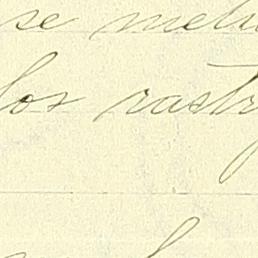 se metu
los rastr